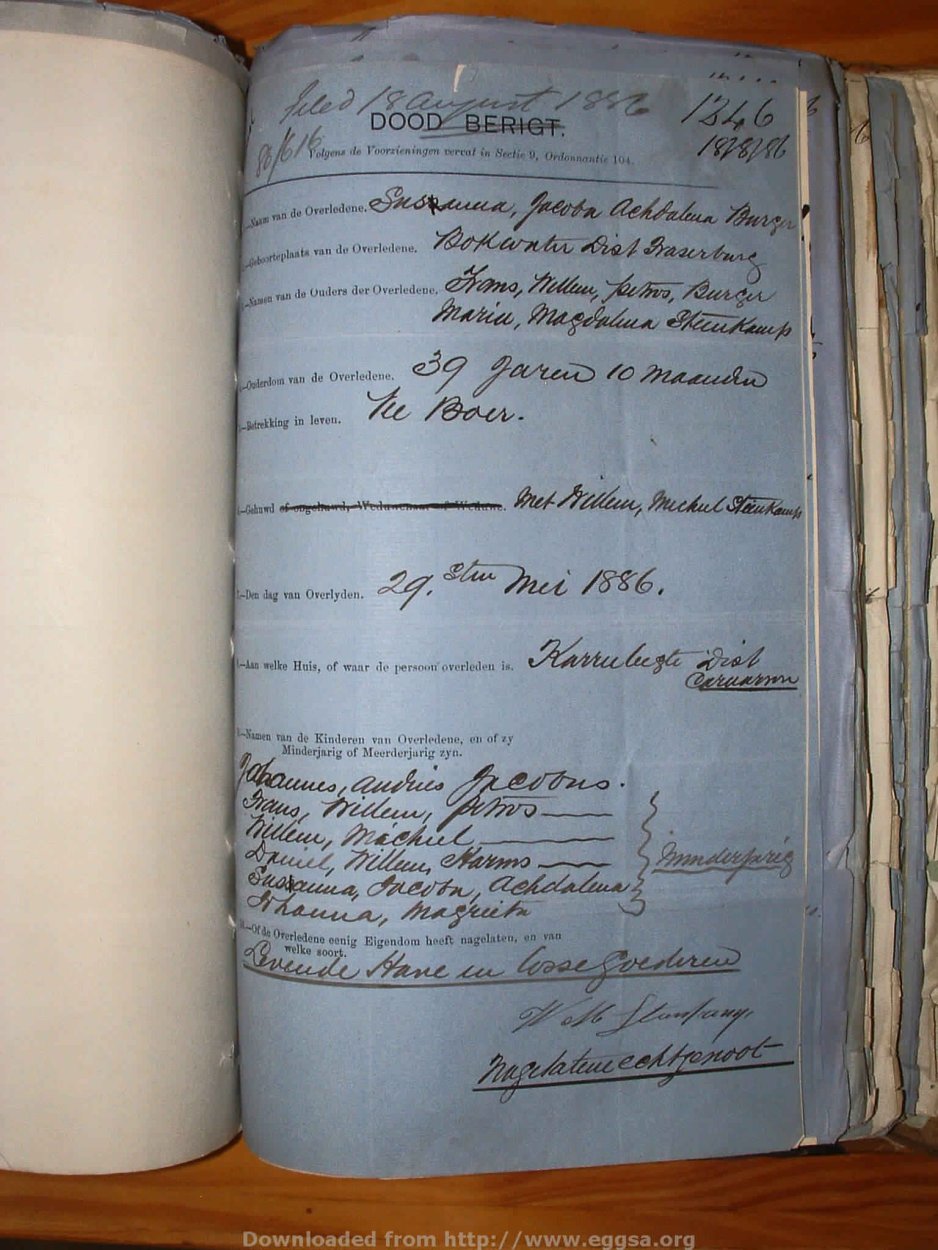 filed 18 August 1886 1246
DOOD BERIGT. 18/8/86
86/616
Volgens de Voorzieningen vervat in Sectie 9, Ordonnantie 104.
—Naam van de Overledene. Susanna, Jacoba Achdalena Burger
—Geboorteplaats van de Overledene. Bokwater Dist Fraserburg
—Namen van de Ouders der Overledene. Frans, Willem, petrus, Burger
Maria, Magdalena Steenkamp
—Ouderdom van de Overledene. 39 Jaren 10 Maanden
—Betrekking in leven. Vee Boer.
—Gehuwd of ongehuwd, Weduwenaar of Weduwe. Met Willem, Michiel Steenkamp
7.—Den dag van Overlyden. 29.sten Mei 1886.
—Aan welke Huis, of waar de persoon overleden is. Karruleegte Dist
Carnarvon
9.—Namen van de Kinderen van Overledene, en of zy
Minderjarig of Meerderjarig zyn.
Johannes, Andries Jacobus.
Frans, Willem, petrus
Willem, Michiel
Daniel, Willem, Harms Minderjarig
Susanna, Jacoba, Achdalena
Johanna, Magrieta
10.—Of de Overledene eenig Eigendom heeft nagelaten, en van
welke soort.
Levende Have en losse Goederen
W M
Nagelatene echtgenoot
Downloaded from http://www.eggsa.org